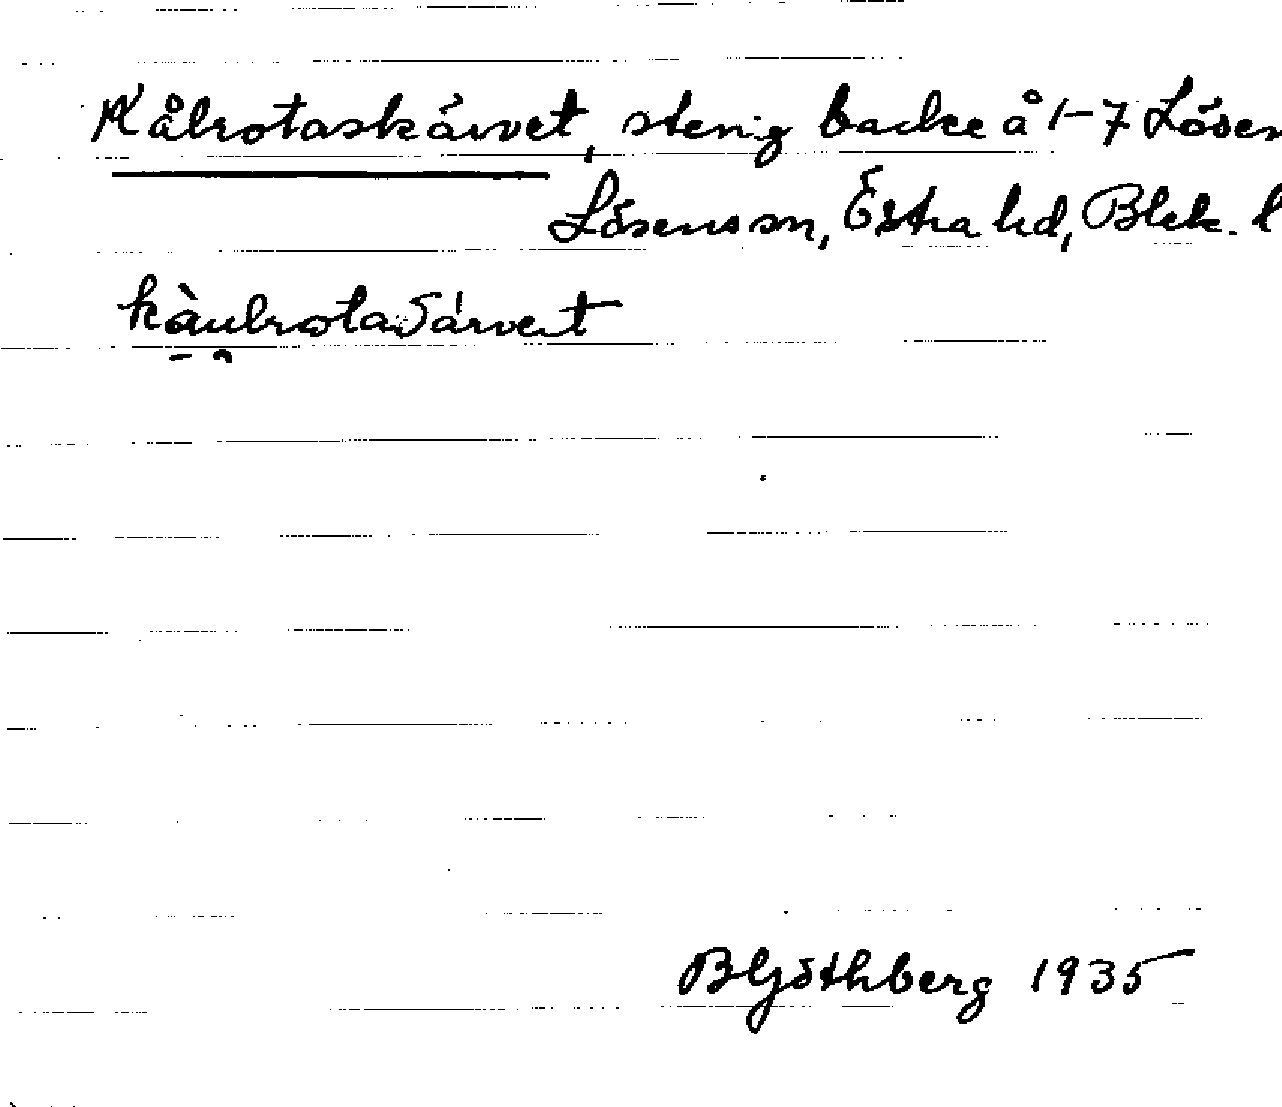 Kålrotaskärvet, stenig backe å 1-7 Lösen
Lösens sn, Östra hd, Blek. l
kàulrotaSárvet
B Götbberg 1935